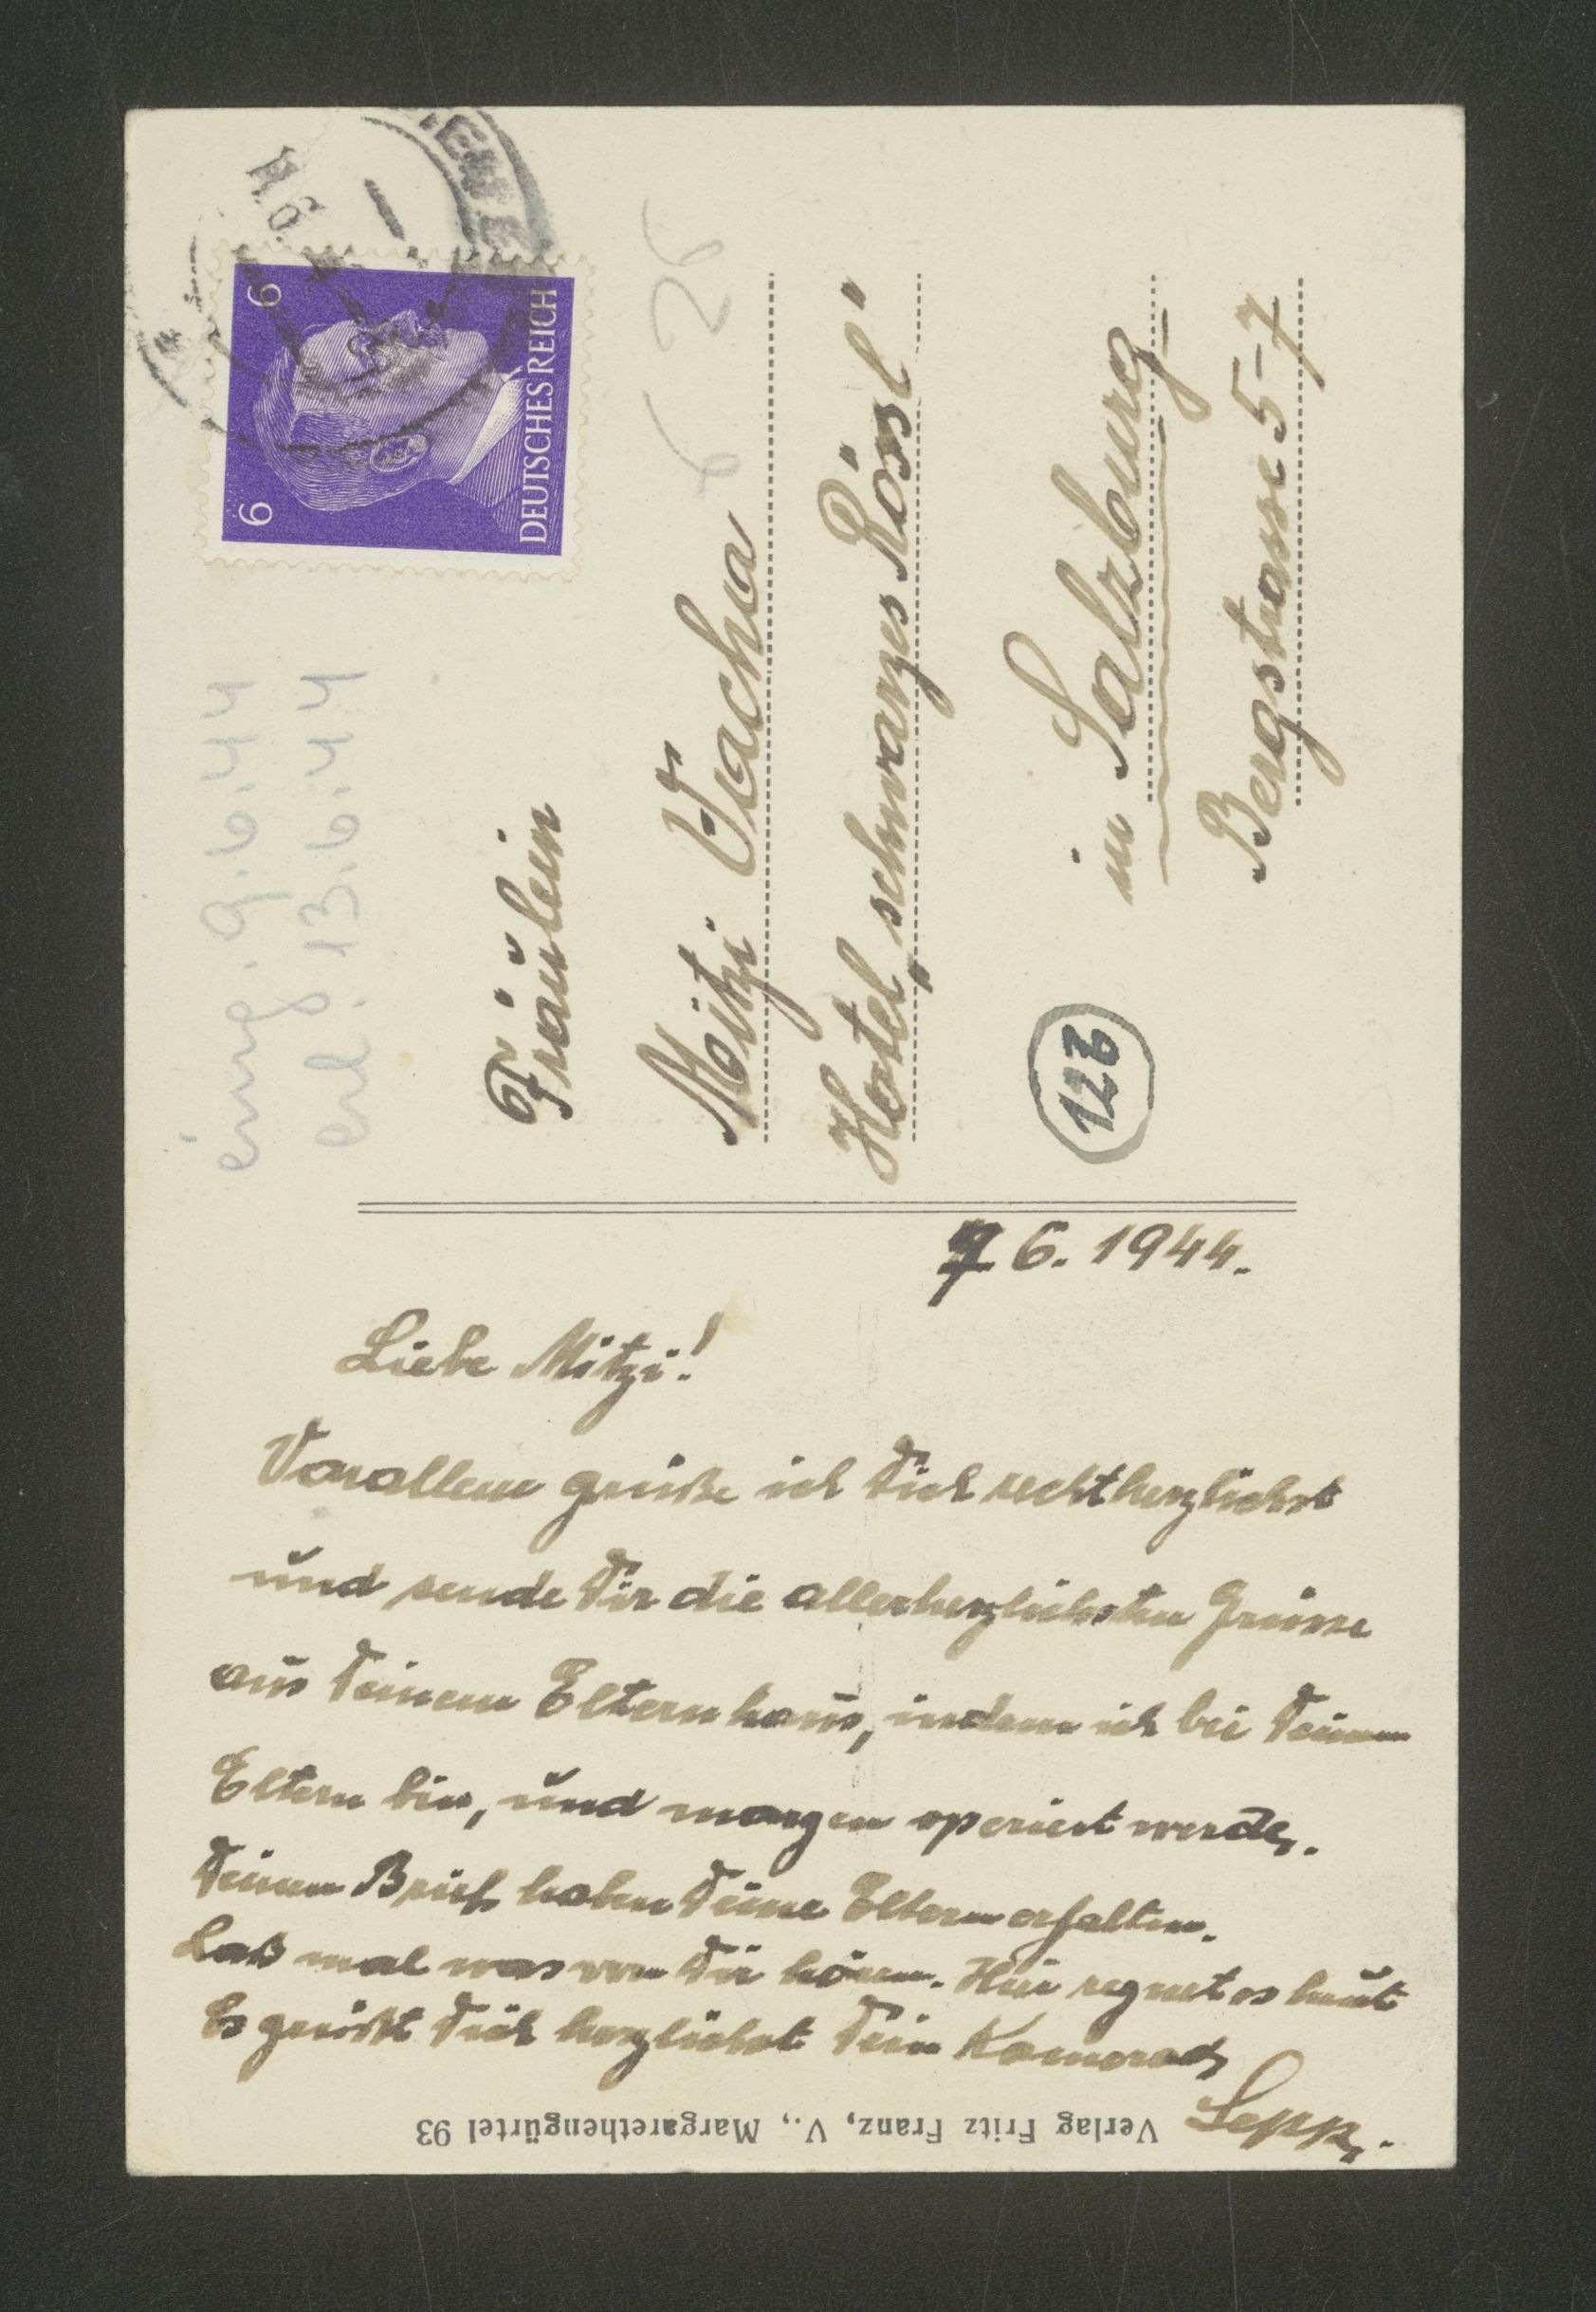 6
6
DEUTSCHES REICH
eing. 9.6.44
erl. 13.6.44
6 26
Fräulein
Mitzi Vacha
Hotel „schwarzes Rössl"
in Salzburg
Bergstrasse 5-7
12b
7. 6. 1944.
Liebe Mitzi!
Vorallem grüße ich Dich recht herzlichst
und sende Dir die allerherzlichsten Grüsse
aus Deinem Elternhaus, indem ich bei Deinen
Eltern bin, und morgen operiert werde.
Deinen Brief haben Deine Eltern erhalten.
Laß mal was von Dir hören. Hier regnet es heut
Es grüßt Dich herzlichst Dein Kamerad
Sepp.
Verlag Fritz Franz, V., Margarethengürtel 93